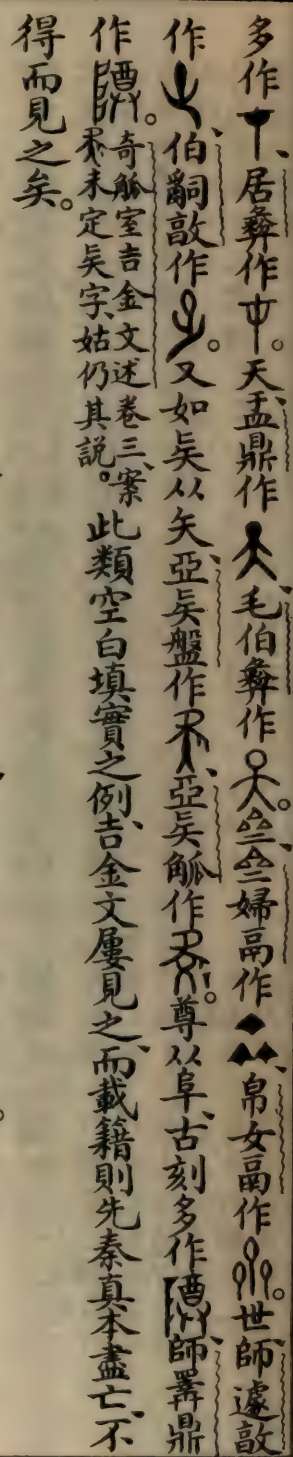 多作、居彝作。天、盂鼎作、毛伯彝作。厽、厽婦鬲作、帛女鬲作。世、師遽敦
作、伯嗣敦作。又如㠱从矢、亞㠱盤作、亞㠱觚作。尊从阜、古刻多作、師𩛥鼎
作。奇觚室吉金文述卷三、案
未定㠱字、姑仍其說。此類空白填實之例、吉金文屢見之、而載籍則先秦真本盡亡、不
得而見之矣。